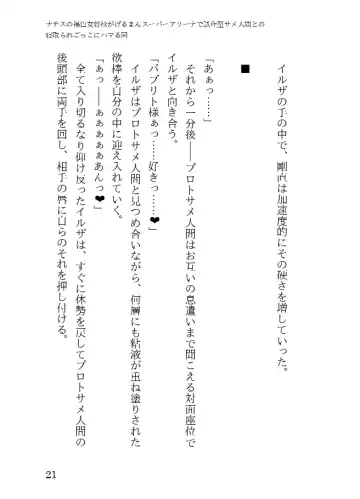 ナチスの褐色女将校がげるまんスーパーアリーナで試作型サメ人間との
寝取られごっこにハマる回
イルザの手の中で、剛直は加速度的にその硬さを増していった。
■
「あぁっ……」
それから一分後――プロトサメ人間はお互いの息遣いまで聞こえる対面座位で
イルザと向き合う。
「パブリト様ぁっ……好きっ……❤」
イルザはプロトサメ人間と見つめ合いながら、何層にも粘液が重ね塗りされた
欲棒を自分の中に迎え入れていく。
「ぁっ――ぁぁぁぁあんっ❤」
全て入り切るなり仰け反ったイルザは、すぐに体勢を戻してプロトサメ人間の
後頭部に両手を回し、相手の唇に自らのそれを押し付ける。
21